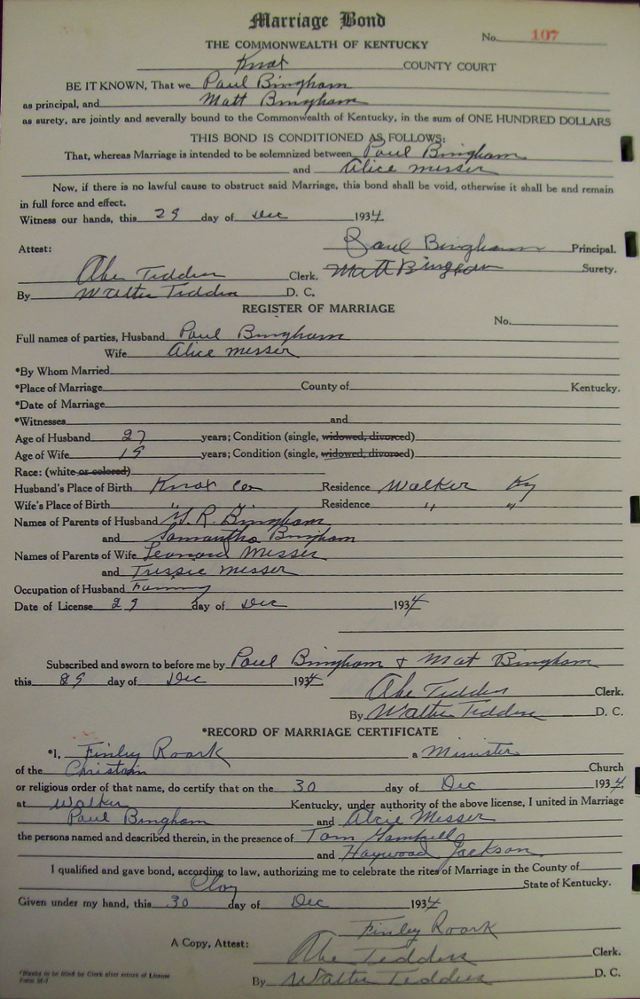 Marriage Bond
No. 107
THE COMMONWEALTH OF KENTUCKY
Knox COUNTY COURT
BE IT KNOWN, That we Paul Bingham
as principal, and Matt Bingham
as surety, are jointly and severally bound to the Commonwealth of Kentucky, in the sum of ONE HUNDRED DOLLARS
THIS BOND IS CONDITIONED AS FOLLOWS:
That, whereas Marriage is intended to be solemnized between Paul Bingham
and Alice Messer
Now, if there is no lawful cause to obstruct said Marriage, this bond shall be void, otherwise it shall be and remain
in full force and effect.
Witness our hands, this 29 day of Dec 1934
Attest: Paul Bingham Principal.
Abe Tedders Clerk. Matt Bingham Surety.
By Walter Tedders D. C.
REGISTER OF MARRIAGE
No.
Full names of parties, Husband Paul Bingham
Wife Alice Messer
*By Whom Married
*Place of Marriage County of Kentucky.
*Date of Marriage
*Witnesses and
Age of Husband 27 years; Condition (single, widowed, divorced)
Age of Wife 19 years; Condition (single, widowed, divorced)
Race: (white or colored)
Husband's Place of Birth Knox Co Residence Walker Ky
Wife's Place of Birth " Residence " "
Names of Parents of Husband R. Bingham
and Samantha Bingham
Names of Parents of Wife Leonard Messer
and Trissie Messer
Occupation of Husband Farming
Date of License 29 day of Dec 1934
Subscribed and sworn to before me by Paul Bingham & Mat Bingham
this 29 day of Dec 1934
Abe Tedders Clerk.
By Walter Tedders D. C.
*RECORD OF MARRIAGE CERTIFICATE
*I, Finley Roark a Minister
of the Christain Church
or religious order of that name, do certify that on the 30 day of Dec 1934
at Walker Kentucky, under authority of the above license, I united in Marriage
Paul Bingham and Alice Messer
the persons named and described therein, in the presence of Tom
and Haywood Jackson
I qualified and gave bond, according to law, authorizing me to celebrate the rites of Marriage in the County of
Clay State of Kentucky.
Given under my hand, this 30 day of Dec 1934
Finley Roark
A Copy, Attest: Abe Tedders Clerk.
By Walter Tedders D. C.
*Blanks to be filled by Clerk after return of License